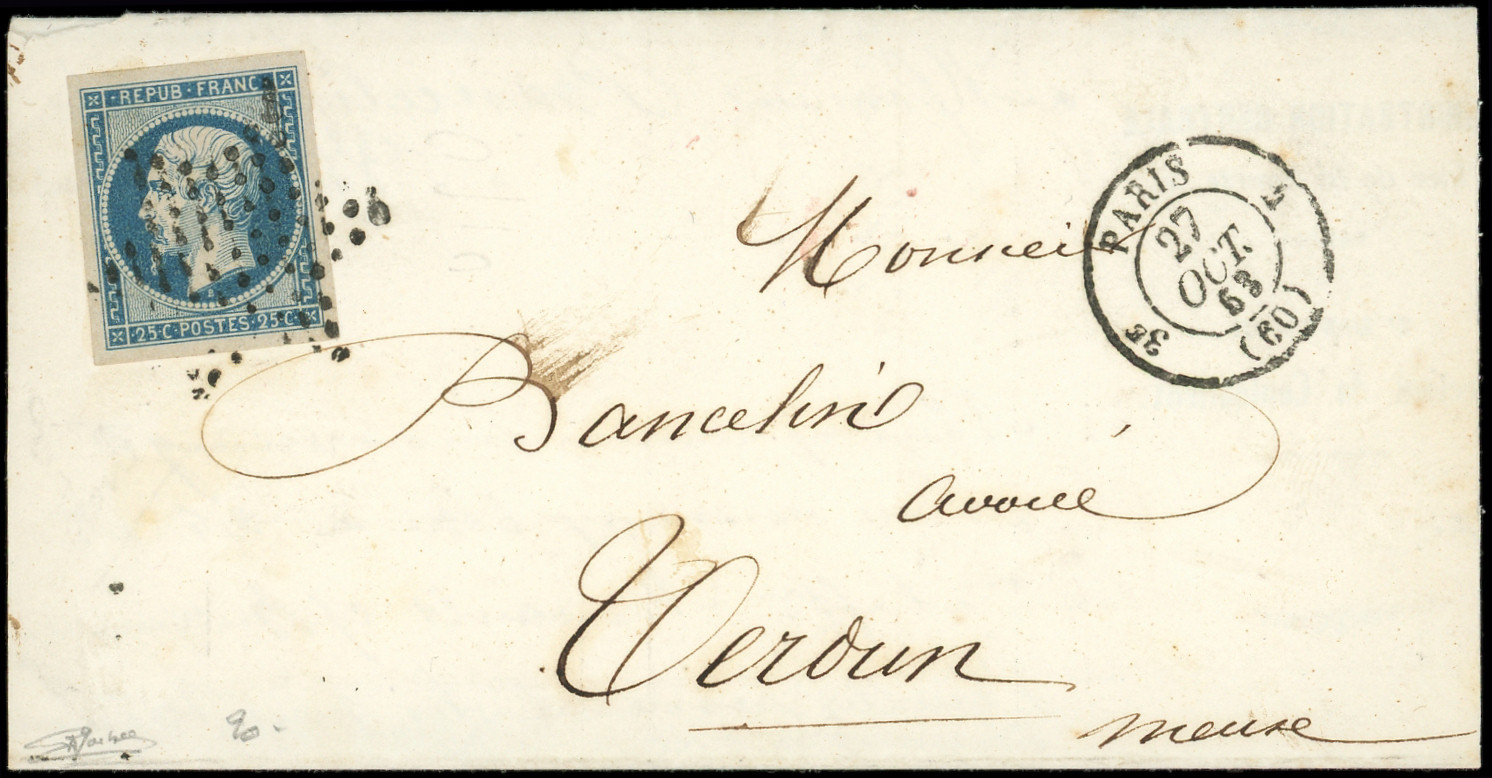 REPUB · FRANC
25·C·POSTES·25·C·
PARIS
3E
27
OCT.
53
(60)
Monsieur
Bancelin
avoué
Verdun
meuse